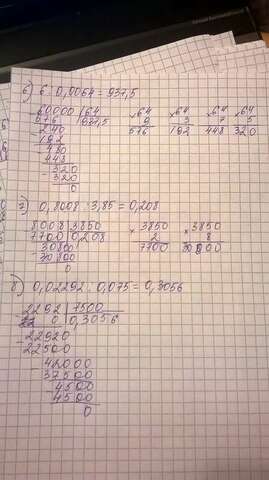 в) 6 : 0,0064 = 937,5
60000 | 64
576 | 937,5
240
192
480
448
320
320
0
×64
9
576
×64
3
192
×64
7
448
×64
5
320
г) 0,8008 : 3,85 = 0,208
8008 | 3850
7700 | 0,208
30800
30800
0
×3850
2
7700
×3850
8
30800
0,02292 : 0,075 = 0,3056
2292 | 7500
0 | 0,3056
22920
22500
42000
37500
4500
4500
0